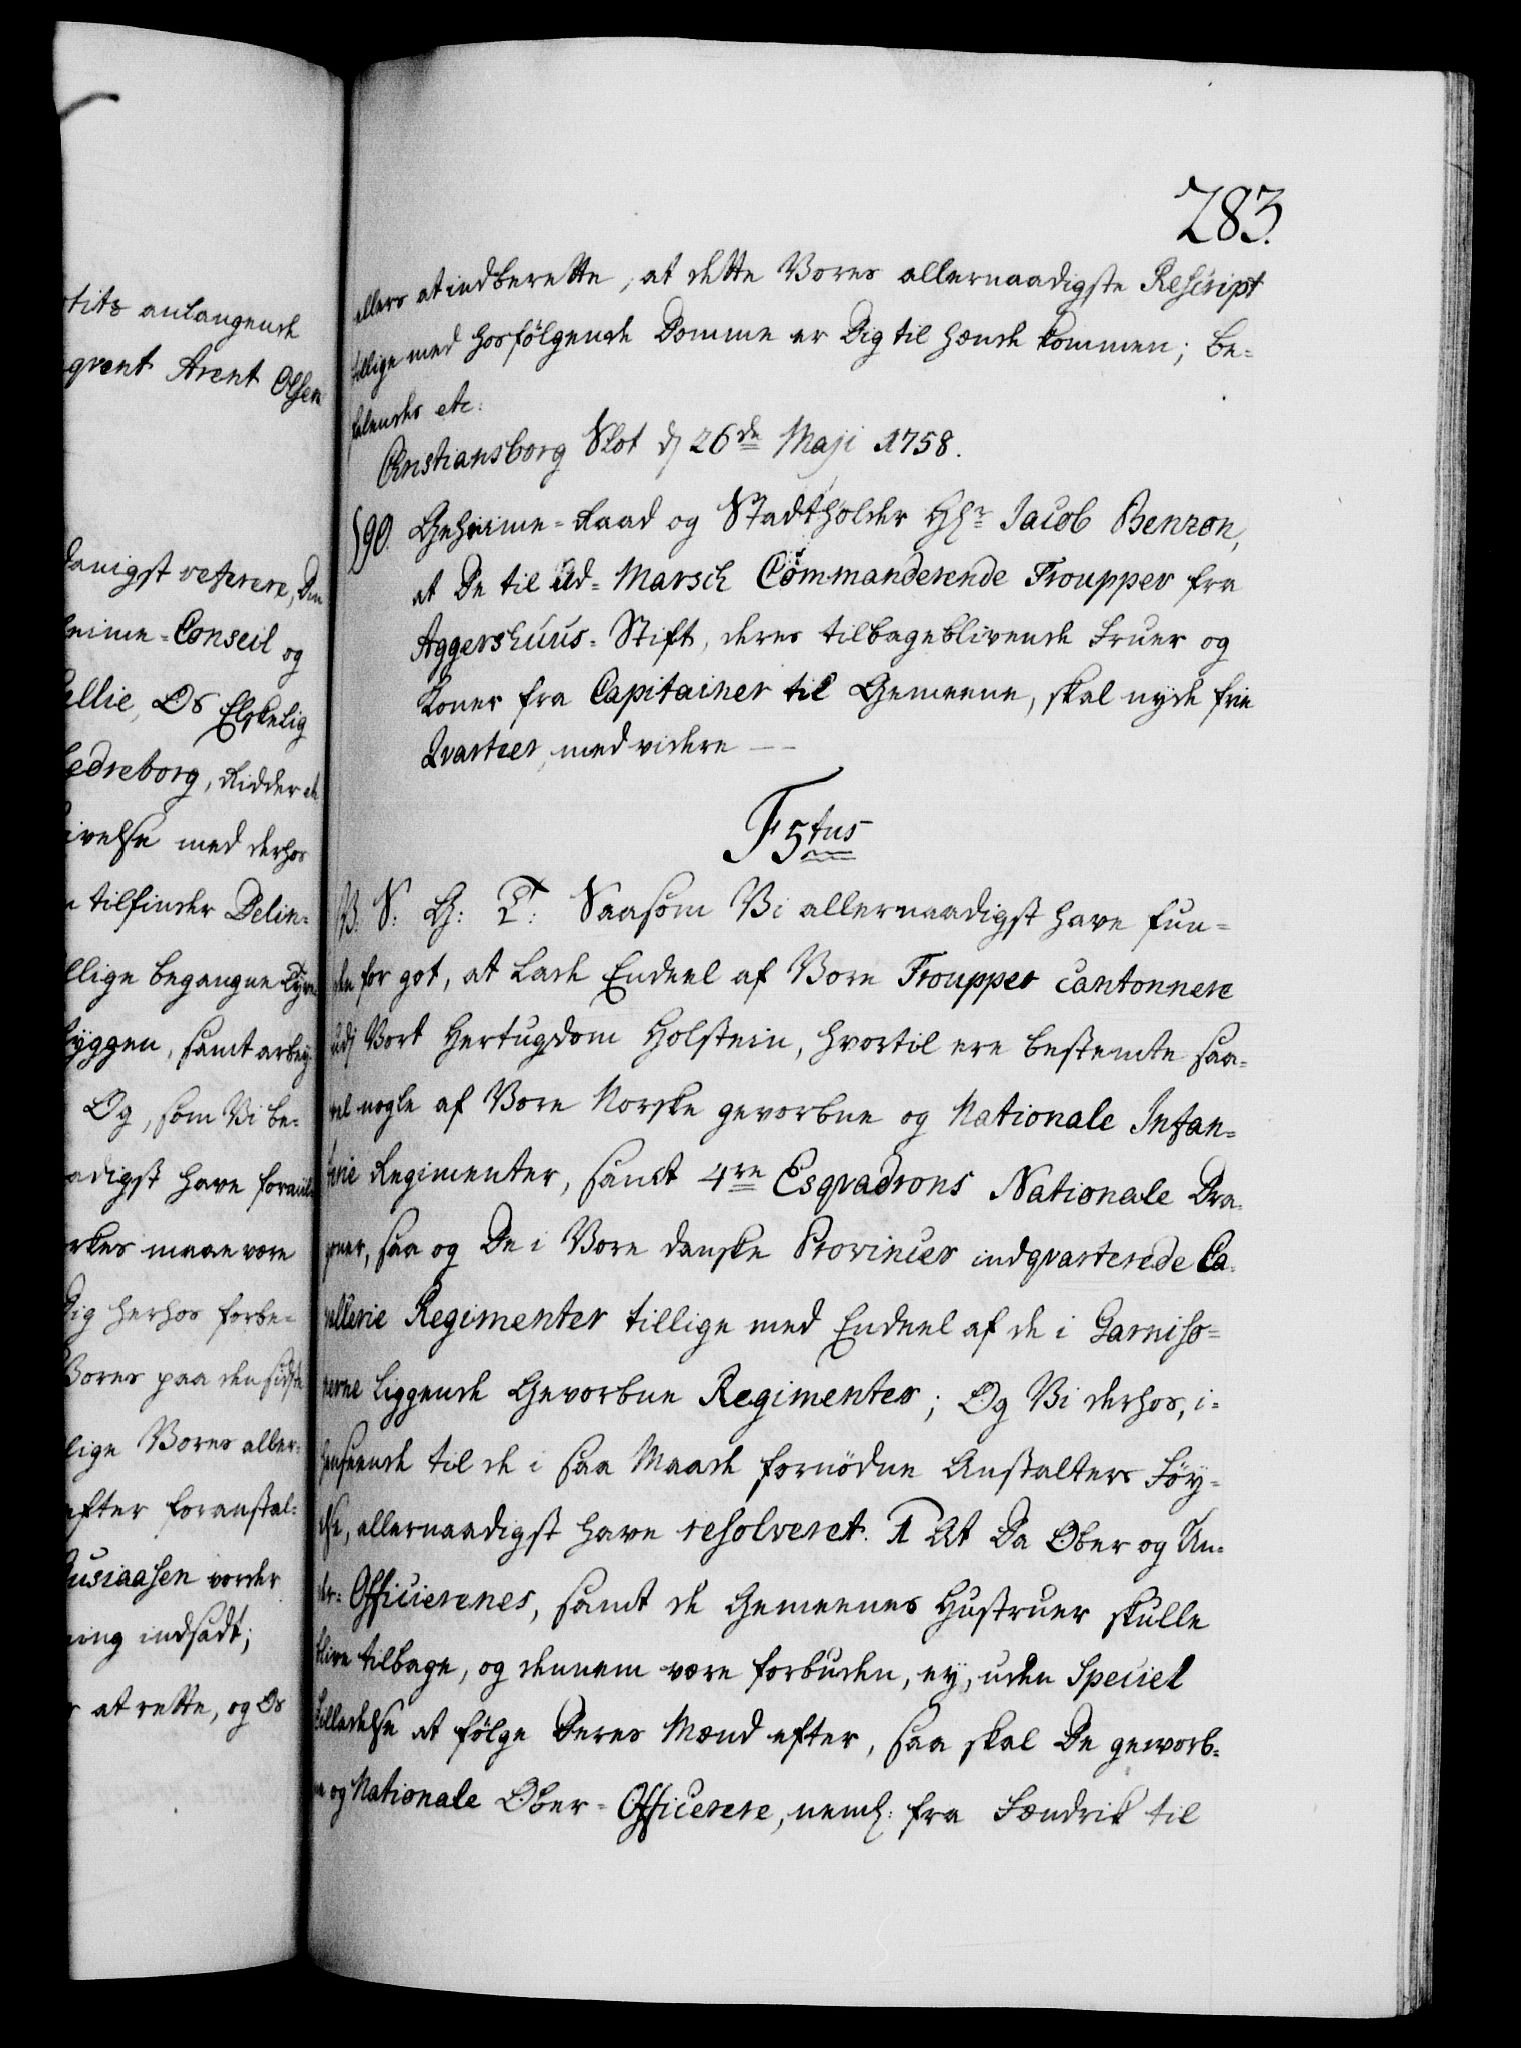 283.
ellers at indberette, at dette Vores allernaadigste Rescript
tillige med hosfølgende Domme er Dig til hænde kommen; Be-
falendes etc:
Christiansborg Slot d 26de Maji 1758.
590. Geheime-Raad og Stadtholder Hr Jacob Benzon,
at De til Ud-Marsch Commanderende Troupper fra
Aggershuus-Stift, deres tilbageblivende Fruer og
Koner fra Capitainer til Gemeene, skal nyde frie
Qvarteer, med videre —
F 5tus
V: S: G: T: Saasom Vi allernaadigst have fun-
den for got, at lade Endeel af Vore Troupper cantonnere
udj Vort Hertugdom Holstein, hvortil ere bestemte saa-
vel nogle af Vore Norske gevorbne og Nationale Infan-
terie Regimenter, samt 4re Esqvadrons Nationale Dra-
goner, saa og De i Vore danske Provincer indqvarterede Ca-
vallerie Regimenter tillige med Endeel af de i Garniso-
nerne liggende Gevorbne Regimenter; Og Vi derhos, i-
henseende til de i saa Maade fornødne Anstalters Føy-
else, allernaadigst have resolveret. 1 At Da Ober og Un-
der-Officierenes, samt de Gemeenes Hustruer skulle
blive tilbage, og dennem være forbuden, ey, uden Speciel
Tilladelse at følge Deres Mænd efter, saa skal De geworb-
ne og Nationale Ober-Officerere, neml: fra Fændrik til
titz anlangende
qvent Arent Olsen
danigst referere, Den
heime-Conseil og
cellie, Os Elskelig
Ledreborg, Ridder etc
ivelse med derhos
n tilfinder Delin-
llige begangne Tyve-
byggen, samt arbey-
Og, som Vi be-
adigst have foranl
erkes maae være
Dig herhos forbe-
Vores paa den sidste
lige Vores aller-
efter foranstal-
Eusiaasen vorder
ning indsadt;
r at rette, og Os